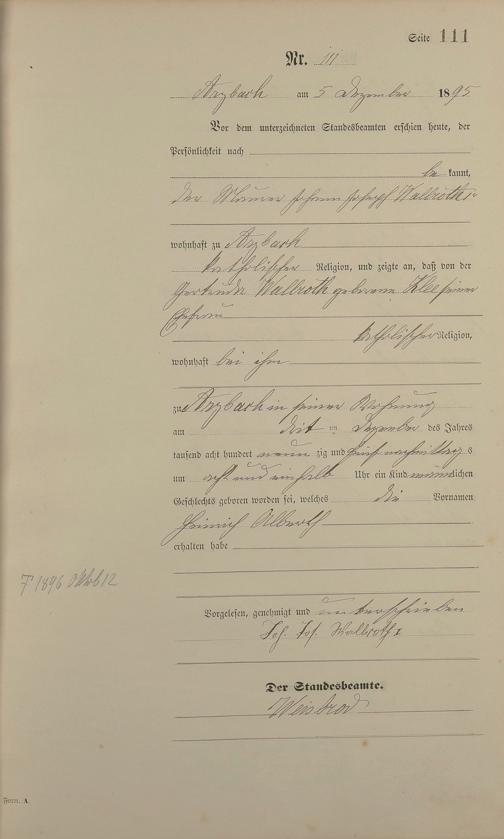 Seite 111
Nr. 111
Arzbach am 5 Dezember 1895
Vor dem unterzeichneten Standesbeamten erschien heute, der
Persönlichkeit nach
be kannt,
der Maurer Johann Joseph Wallroth I
wohnhaft zu Arzbach
katholischer Religion, und zeigte an, daß von der
Gertruda Wallroth geborene Klee seiner
Ehefrau
katholischer Religion,
wohnhaft bei ihm
zu Arzbach in seiner Wohnung
am ten Dezember des Jahres
tausend acht hundert neun zig und fünf nachmittag s
um acht und einhalb Uhr ein Kind männlichen
Geschlechts geboren worden sei, welches die Vornamen
Heinrich Alberth
erhalten habe
† 1896 12
Vorgelesen, genehmigt und unterschrieben
Joh. Jos. Wallroth I
Der Standesbeamte.
Weisbrod
Form. A.